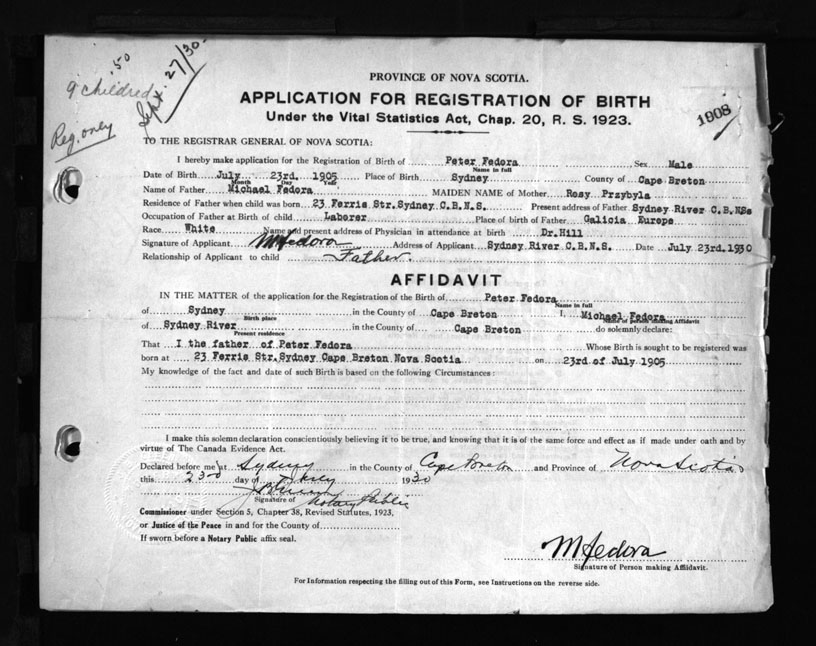 .50
9 children
Sept. 27/30.
Reg. only
PROVINCE OF NOVA SCOTIA.
APPLICATION FOR REGISTRATION OF BIRTH
1908
Under the Vital Statistics Act, Chap. 20, R. S. 1923.
TO THE REGISTRAR GENERAL OF NOVA SCOTIA:
I hereby make application for the Registration of Birth of Peter Fedora Sex Male
Name in full
Date of Birth July 23rd. 1905 Place of Birth Sydney County of Cape Breton
Month Day Year
Name of Father Michael Fedora MAIDEN NAME of Mother Rosy Przybyla
Residence of Father when child was born 23 Ferris Str.Sydney C.B.N.S. Present address of Father Sydney River C.B.NSs
Occupation of Father at Birth of child Laborer Place of birth of Father Galicia Europe
Race White Name and present address of Physician in attendance at birth Dr.Hill
Signature of Applicant M Fedora Address of Applicant Sydney River C.B.N.S. Date July 23rd.1930
Relationship of Applicant to child Father.
AFFIDAVIT
IN THE MATTER of the application for the Registration of the Birth of Peter Fedora
Name in full
of Sydney in the County of Cape Breton I, Michael Fedora
Birth place Name of person making Affidavit
of Sydney River in the County of Cape Breton do solemnly declare:
Present residence
That I the father of Peter Fedora Whose Birth is sought to be registered was
born at 23 Ferris Str.Sydney Cape Breton Nova Scotia on 23rd of July 1905
My knowledge of the fact and date of such Birth is based on the following Circumstances:
I make this solemn declaration conscientiously believing it to be true, and knowing that it is of the same force and effect as if made under oath and by
virtue of The Canada Evidence Act.
Declared before me at Sydney in the County of Cape Breton and Province of Nova Scotia
this 23rd day of July 1930
Signature of Notary Public
Commissioner under Section 5, Chapter 38, Revised Statutes, 1923,
or Justice of the Peace in and for the County of
If sworn before a Notary Public affix seal.
M Fedora
Signature of Person making Affidavit.
For Information respecting the filling out of this Form, see Instructions on the reverse side.